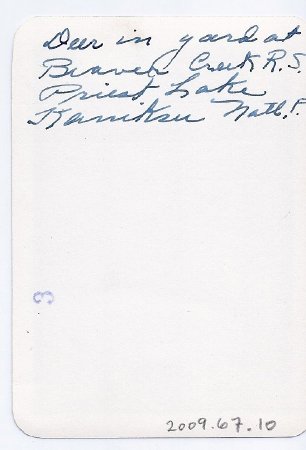 Deer in yard at
Beaver Creek R.S.
Priest Lake
Kaniksu Natl. F
3
2009.67.10